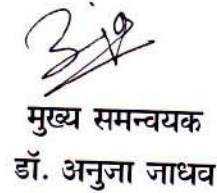 मुख्य समन्वयक
डॉ. अनुजा जाधव